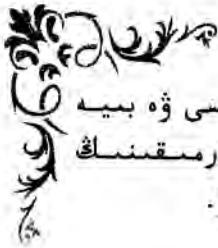 ىسى ۋە بىيە
رمىقىنىڭ